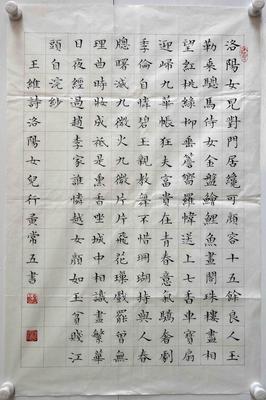 洛陽女兒對門居纔可顏容十五餘良人玉
勒乘驄馬侍女金盤鱠鯉魚畫閣珠樓盡相
望紅桃綠柳垂簷嚮羅幃送上七香車寶扇
迎歸九華帳狂夫富貴在青春意氣驕奢劇
季倫自憐碧玉親教舞不惜珊瑚持與人春
牕曙滅九微火九微片片飛花璅戲罷曾無
理曲時妝成祗是熏香坐城中相識盡繁華
日夜經過趙李家誰憐越女顏如玉貧賤江
頭自浣紗
王維詩洛陽女兒行黃常五書